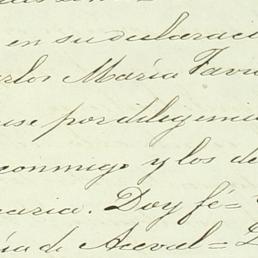 en su declaració
arlos María Favi
use por diligencia
conmigo y los de
maria. Doy fé =
ía de Aceval =